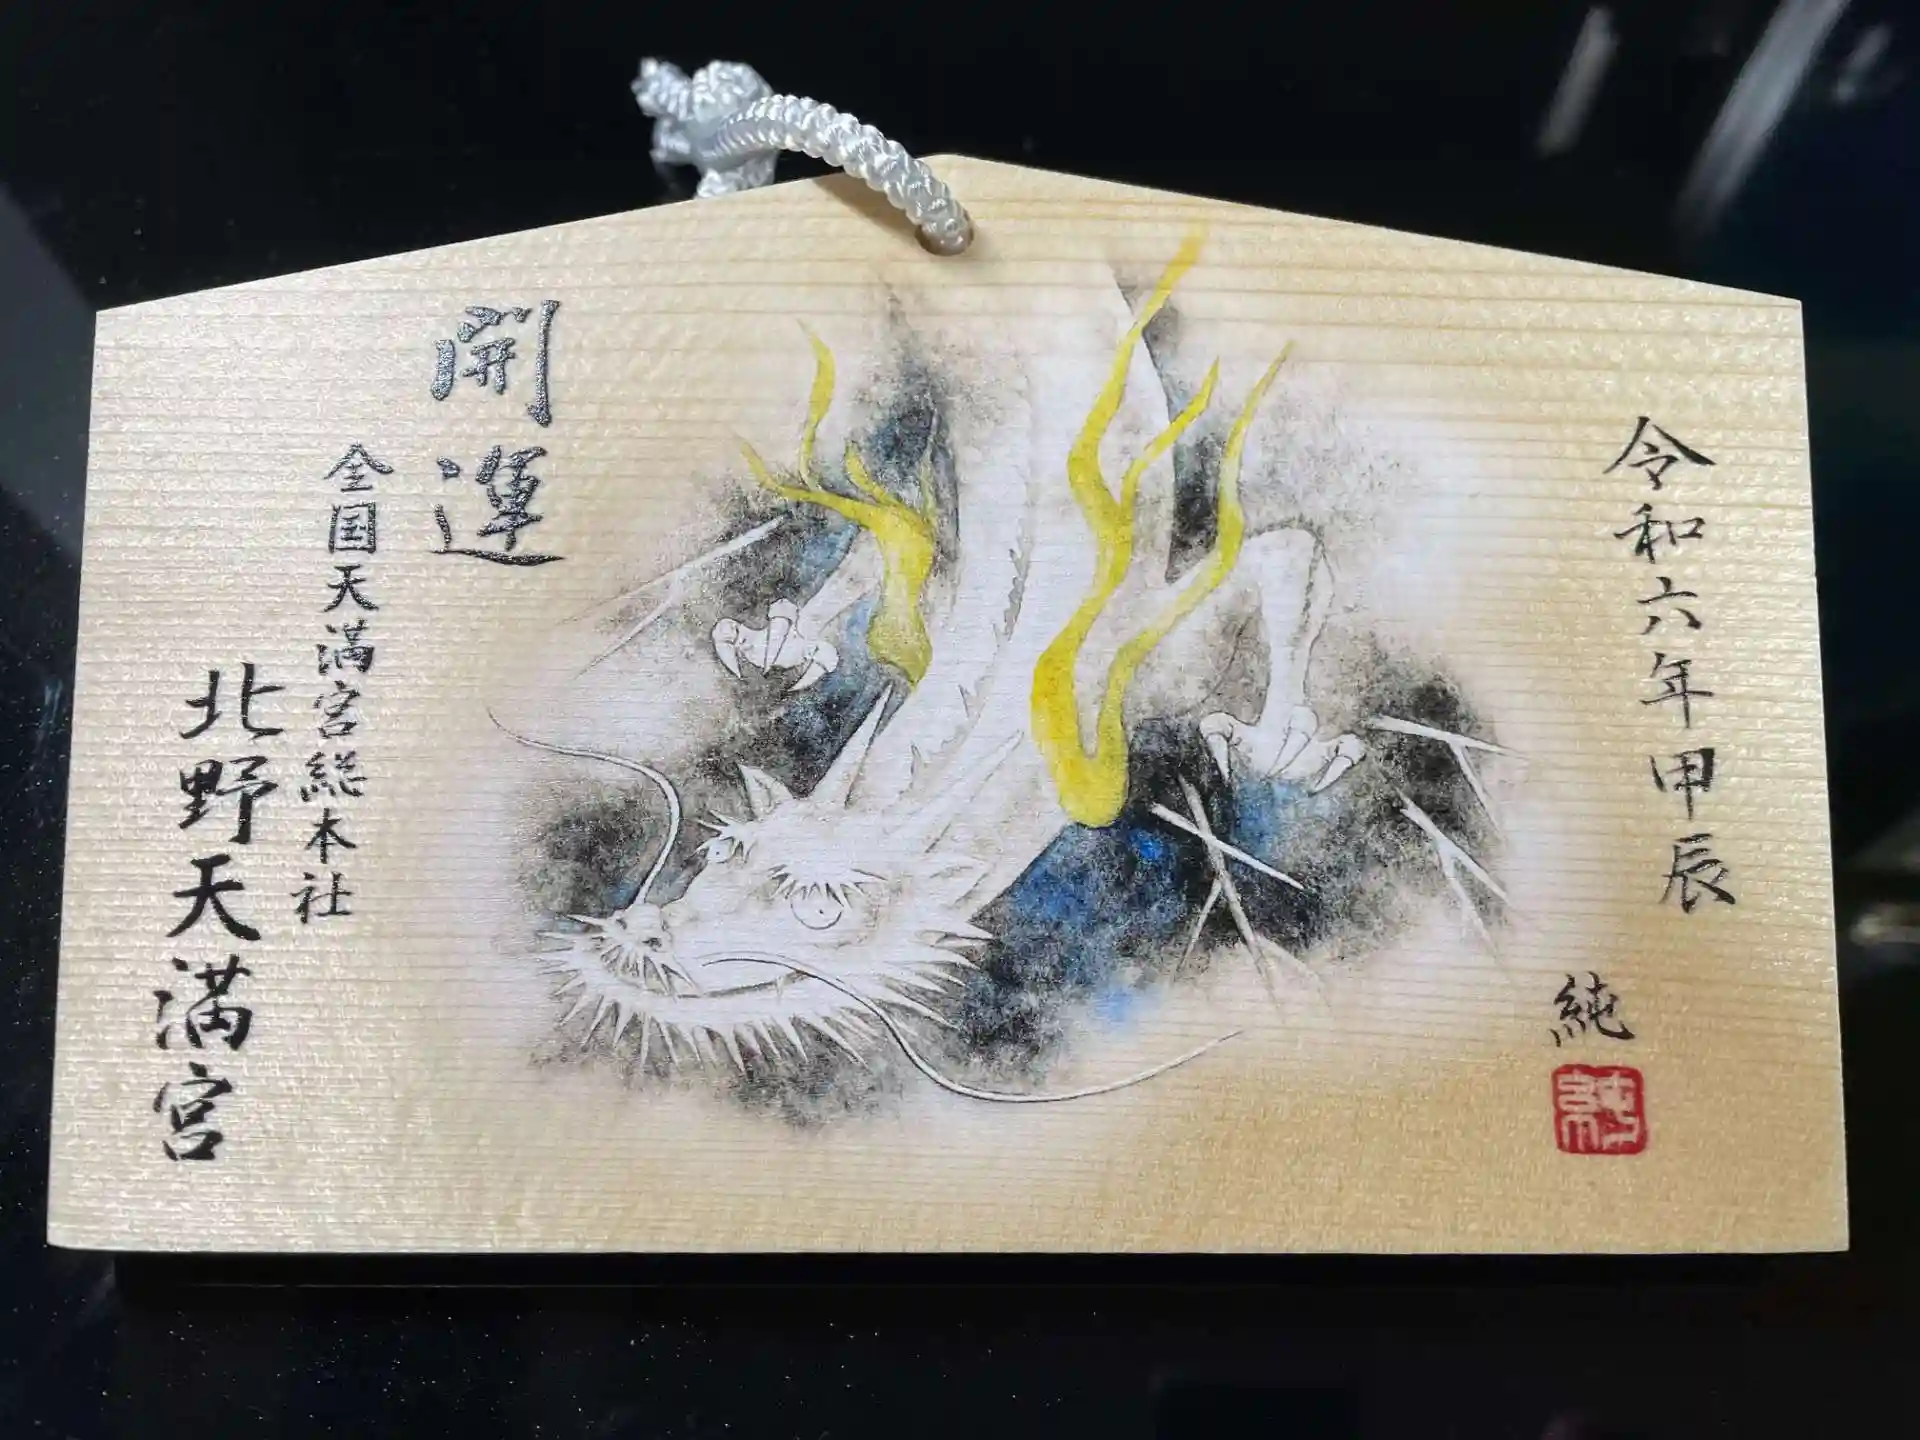 令和六年甲辰
純
純
開運
全国天満宮総本社
北野天満宮